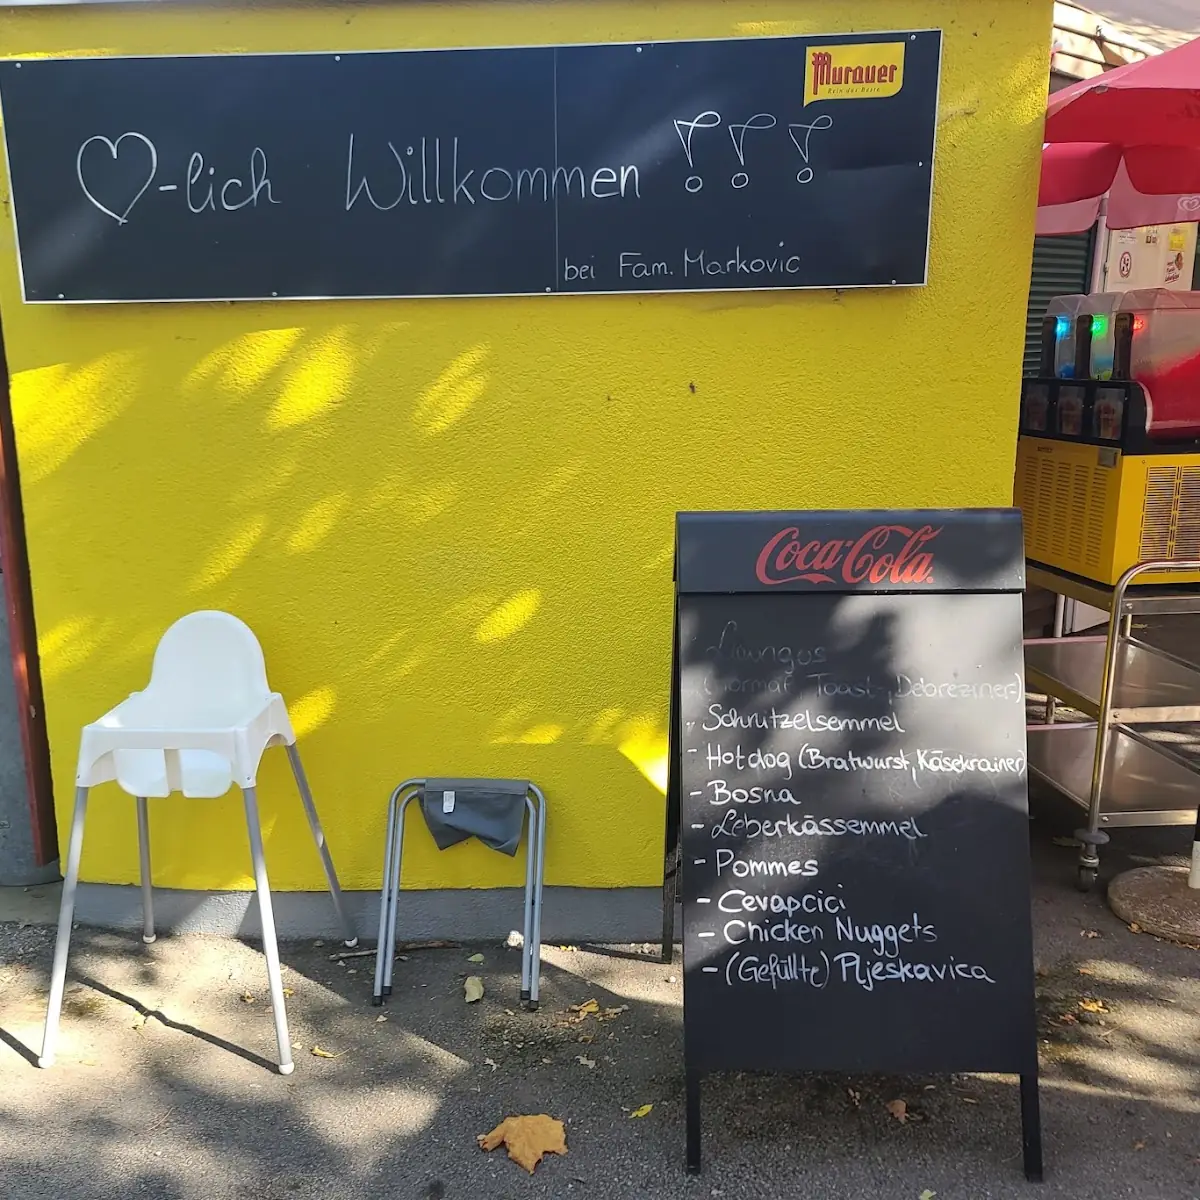 Murauer
Rein das Beste
♡-lich Willkommen !!!
bei Fam. Markovic
Coca-Cola
Langos
(Normal-, Toast-, Debreziner-)
- Schnitzelsemmel
- Hotdog (Bratwurst, Käsekrainer)
- Bosna
- Leberkässemmel
- Pommes
- Cevapcici
- Chicken Nuggets
- (Gefüllte) Pljeskavica